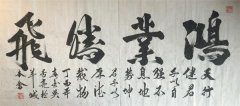 鴻業騰飛
天行健君
子以自
强不息地
势坤
君子以
厚德
載物
丁酉年
羊城